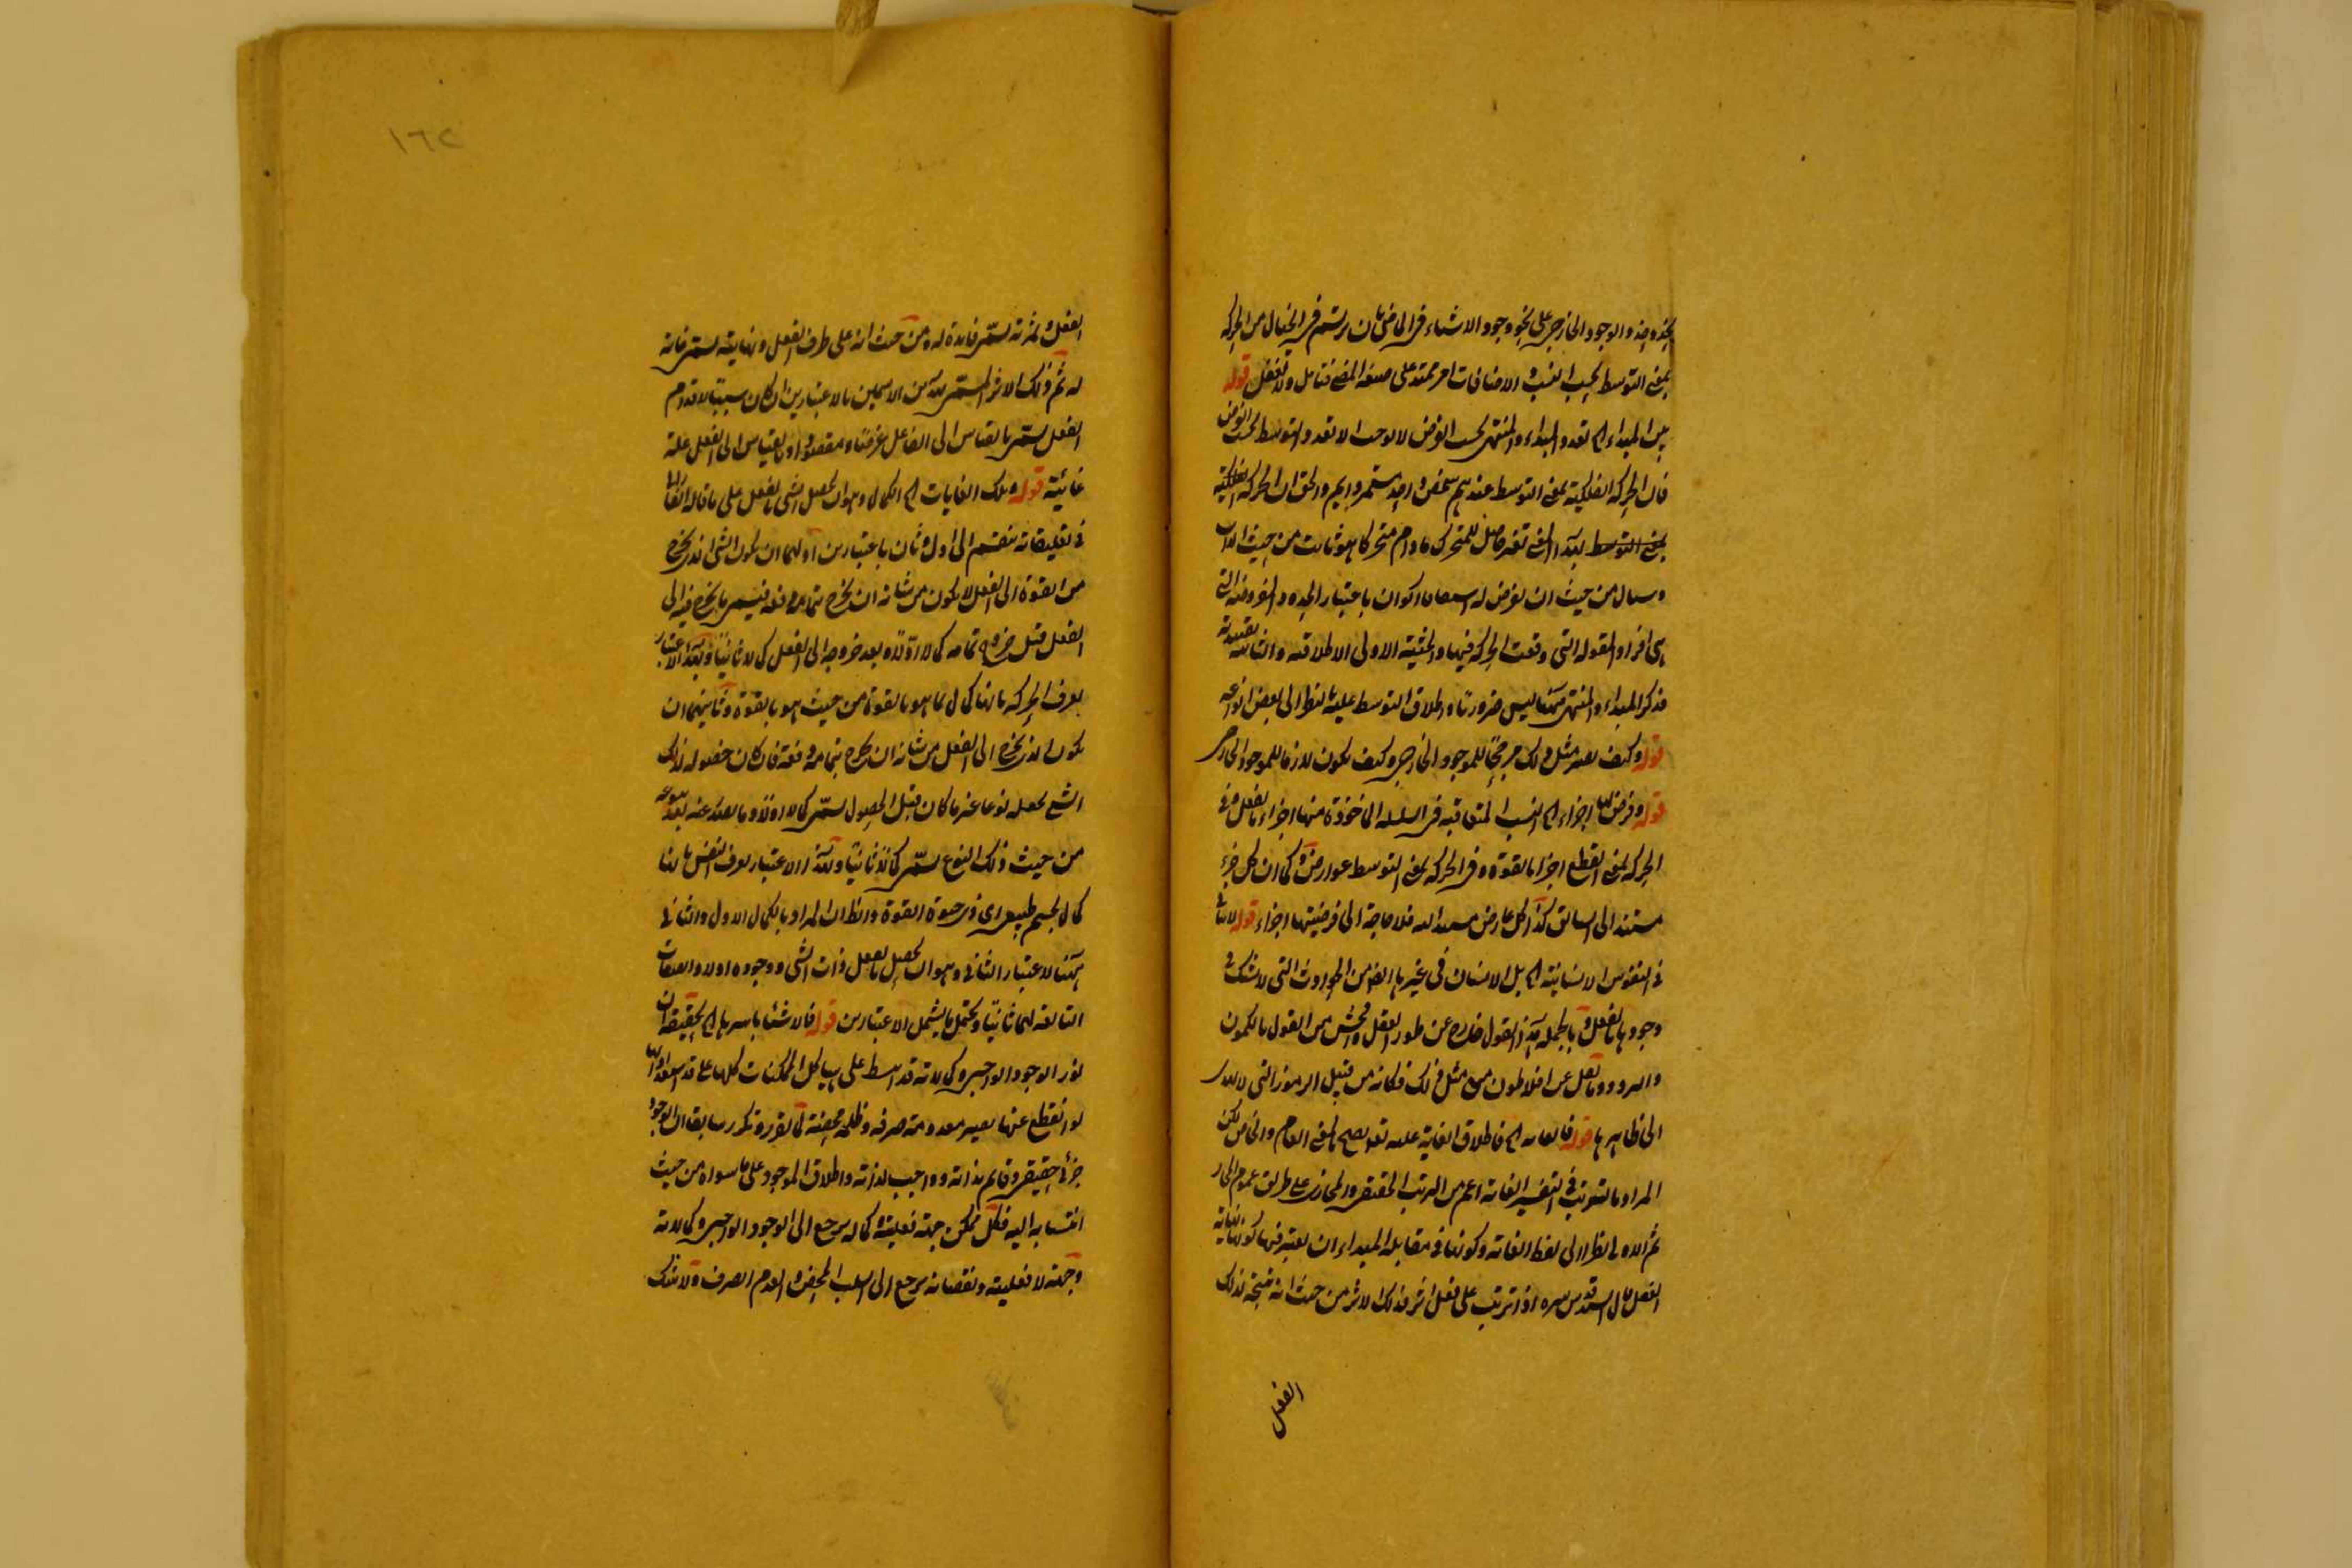 بمعنى التوسط بحسب النسب والاضافات امر ممتد على صفة المضى فتأمل ولا تغفل قوله
بين المبداء الخ تعدد المبداء والمنتهى بحسب الفرض لا يوجب الا تعدد التوسط بحسب الفرض
فان الحركة الفلكية بمعنى التوسط عندهم شخص واحد مستمر دايم والحق ان الحركة الفلكية
بمعنى التوسط بهذا المعنى تغير حاصل للمتحرك مادام متحركا هو ثابت من حيث الذات
وسيال من حيث ان يفرض له اكوان باعتبار الحدود المفروضة التى
هى افراد المقولة التى وقعت الحركة فيها والحيثية الاولى الاطلاقية والثانية تقييدية
فذكر المبداء والمنتهى ههنا ليس ضروريا واطلاق التوسط عليه بالنظر الى بعض انواعه
قوله وكيف يعتبر مثل ذلك مرجحا للموجود الخارجى وكيف يكون لازما للموجود الخارجى
قوله وفرض لها اجزاء الخ النسب المتعاقبة فى السلسلة الماخوذة منها اجزاء بالفعل وفى
الحركة بمعنى القطع اجزا بالقوة وفى الحركة بمعنى التوسط عوارض وكما ان كل جزء
مستند الى السابق كذا كل عارض مستند اليه فلا حاجة الى فرضيتها اجزاء قوله
فى النفوس الانسانية الخ بل الانسان فى غيرها ايضا من الحوادث التى لا شك فى
وجودها بالفعل وبالجملة هذا القول خارج عن طور العقل وافحش من القول بالكمون
والبروز وما نقل عن افلاطون من مثل ذلك فكانه من قبيل الرموز التى
الى ظاهرها قوله فالغاية الخ فاطلاق الغاية عليه تعم يصح بالمعنى العام والخاص لكن
المراد بالترتب فى التفسير الغاية اعم من الترتب الحقيقى والمجازى على طريق عموم المجاز
ثم الاولى نظرا الى لفظ الغاية وكونها فى مقابلة المبداء ان يعتبر فيها كونها نهاية
الفعل قال السيد قدس سره اذا ترتب على فعل اثر فذلك الاثر من حيث انه نتيجة لذلك
الفعل
١٦٢
الفعل وثمرته يسمى فائدة له ومن حيث انه على طرف الفعل ونهايته يسمى غاية
له ثم ذلك الاثر المسمى بهذين الاسمين بالاعتبارين ان كان سببا لاقدام
الفعل يسمى بالقياس الى الفاعل غرضا ومقصودا وبالقياس الى الفعل علة
غائية قوله وتلك الغايات الخ الكمال وهو ان يحصل الشى بالفعل على ما قاله الفارابى
فى تعليقاته ينقسم الى اول وثان باعتبارين اولهما ان يكون الشى الذى يخرج
من القوة الى الفعل لا يكون من شانه ان يخرج بتمامه دفعة فيسمى ما يخرج فيه الى
الفعل قبل خروج تمامه كمالا اولا وبعد خروجه الى الفعل كمالا ثانيا وبهذا الاعتبار
يعرف الحركة بانها كمال لما هو بالقوة من حيث هو بالقوة وثانيهما ان
يكون الذى يخرج الى الفعل من شانه ان يخرج بتمامه دفعة فان كان حصوله لذلك
الشى يجعله نوعا غير ما كان قبل الحصول يسمى كمالا اولا وما يصدر عنه بعد
من حيث ذلك النوع يسمى كمالا ثانيا وبهذا الاعتبار يعرف النفس بانها
كمال لجسم طبيعى اى ذى حيوة بالقوة والظ ان المراد بالكمال الاول والثانى
ههنا الاعتبار الثانى وهو ان يحصل بالفعل ذات الشى ووجوده اولا والصفات
التابعة لهما ثانيا ويحتمل ما يشمل الاعتبارين قوله فالاشيا باسرها الخ تحقيقه ان
نور الوجود الواجبى وكمالاته قد انبسط على هياكل الممكنات كلها على قدر
لو انقطع عنها يصير معدومة صرفة وظلمة محضة لما تقرر وتكرر سابقا ان الوجود
جزئى حقيقى وقايم بذاته وواجب لذاته واطلاق الموجود على ما سواه من حيث
انتسابه اليه فكل ممكن جهة فعليته وكماله يرجع الى الوجود الواجبى وكمالاته
وجهة لا فعليته ونقصانه يرجع الى السلب المحض والعدم الصرف ولا شك